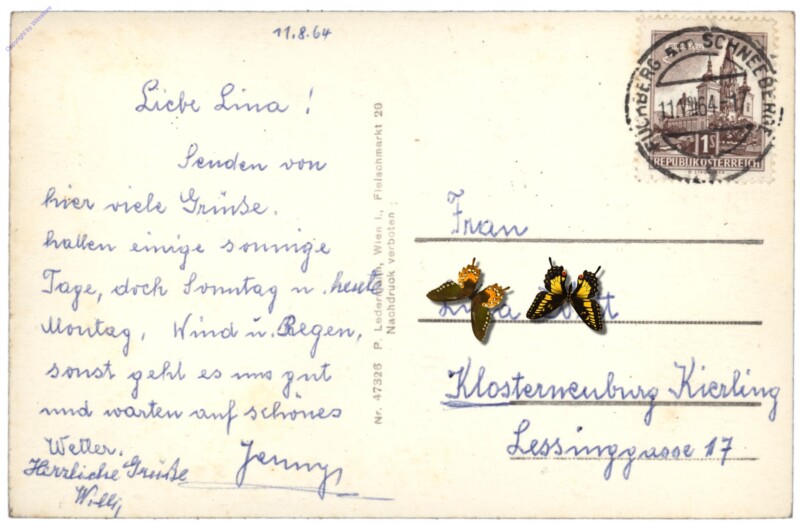 Copyright by Oldthing
11.8.64
Liebe Lina!
Senden von
hier viele Grüße.
hatten einige sonnige
Tage, doch Sonntag u. heute
Montag, Wind u. Regen,
sonst geht es uns gut
und warten auf schönes
Wetter.
Jenny
Herzliche Grüße
Willi
Nr. 47326 P. Ledermann, Wien I., Fleischmarkt 20
Nachdruck verboten
PUCHBERG am SCHNEEBERG
1S
REPUBLIK ÖSTERREICH
Frau
Klosterneuburg Kierling
Lessinggasse 17